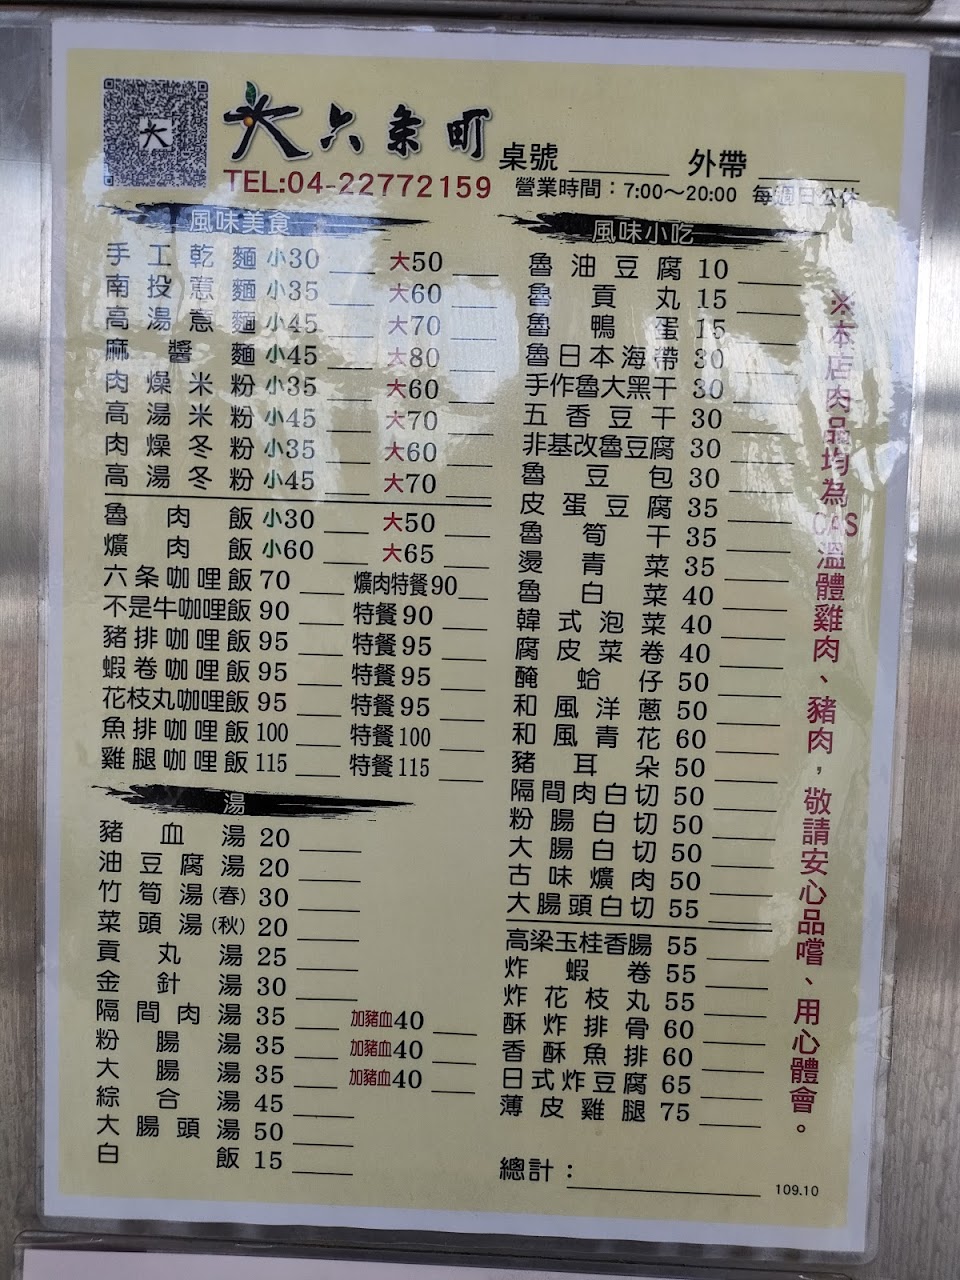 大 六条町
桌號 外帶
TEL:04-22772159
營業時間：7:00～20:00 每週日公休
風味美食
手工乾麵 小30 大50
南投意麵 小35 大60
高湯意麵 小45 大70
麻醬麵 小45 大80
肉燥米粉 小35 大60
高湯米粉 小45 大70
肉燥冬粉 小35 大60
高湯冬粉 小45 大70
魯肉飯 小30 大50
爌肉飯 小60 大65
六条咖哩飯 70 爌肉特餐 90
不是牛咖哩飯 90 特餐 90
豬排咖哩飯 95 特餐 95
蝦卷咖哩飯 95 特餐 95
花枝丸咖哩飯 95 特餐 95
魚排咖哩飯 100 特餐 100
雞腿咖哩飯 115 特餐 115
湯
豬血湯 20
油豆腐湯 20
竹筍湯(春) 30
菜頭湯(秋) 20
貢丸湯 25
金針湯 30
隔間肉湯 35 加豬血40
粉腸湯 35 加豬血40
大腸湯 35 加豬血40
綜合湯 45
大腸頭湯 50
白飯 15
風味小吃
魯油豆腐 10
魯貢丸 15
魯鴨蛋 15
魯日本海帶 30
手作魯大黑干 30
五香豆干 30
非基改魯豆腐 30
魯豆包 30
皮蛋豆腐 35
魯筍干 35
燙青菜 35
魯白菜 40
韓式泡菜 40
腐皮菜卷 40
醃蛤仔 50
和風洋蔥 50
和風青花 60
豬耳朵 50
隔間肉白切 50
粉腸白切 50
大腸白切 50
古味爌肉 50
大腸頭白切 55
高梁玉桂香腸 55
炸蝦卷 55
炸花枝丸 55
酥炸排骨 60
香酥魚排 60
日式炸豆腐 65
薄皮雞腿 75
總計：
109.10
※本店肉品均為CAS溫體雞肉、豬肉，敬請安心品嚐、用心體會。